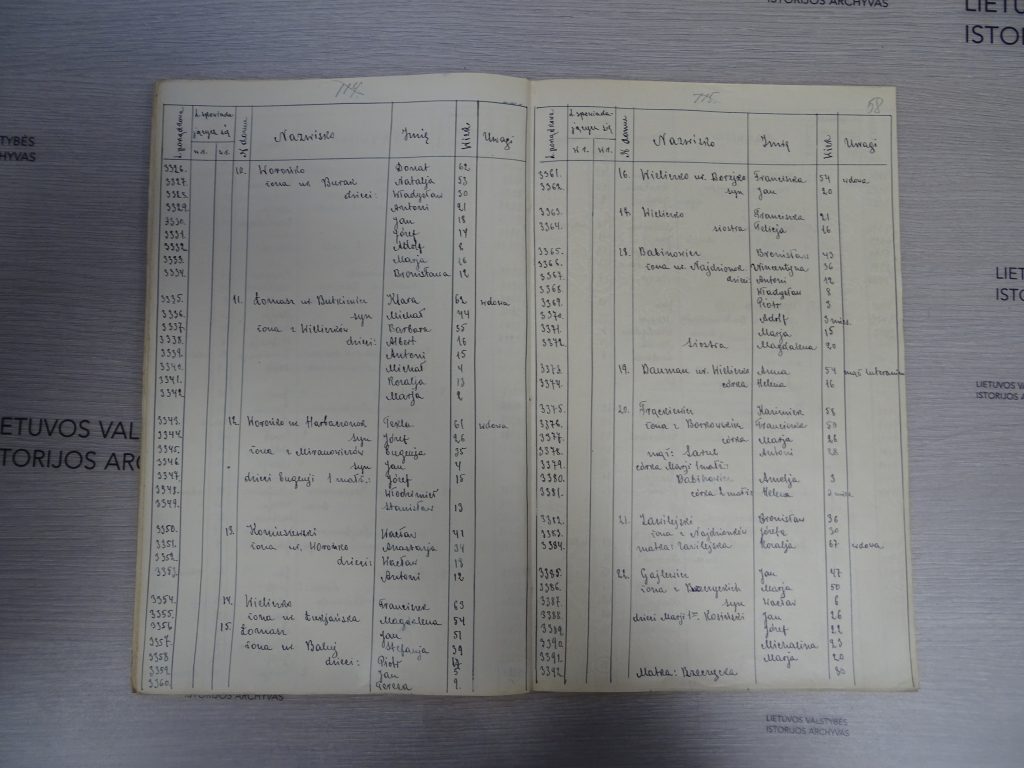 ISTORIJOS ARCHYVAS
LIETUV
ISTORI
TYBĖS
CHYVAS
LIETUV
ISTORI
LIETUVOS VALSTYBĖS
ISTORIJOS ARCHYVAS
ETUVOS VAL
TORIJOS ARCH
ISTORIJOS ARCHYVAS
LIETUVOS VALSTYBĖS
ISTORIJOS ARCHYVAS
114.
L. porządkowa N domu Nazwisko Imię Wiek Uwagi
3326. 10. Woronko Donat 62
3327. żona ur. Burak Natalja 53
3328. dzieci: Władysław 30
3329. Antoni 21
3330. Jan 18
3331. Józef 14
3332. Adolf 8
3333. Marja 16
3334. Bronisława 12
3335. 11. Łomasz ur. Butkiewicz Klara 62 wdowa
3336. syn Michał 44
3337. żona z Wieliczków Barbara 35
3338. dzieci: Albert 16
3339. Antoni 15
3340. Michał 4
3341. Rozalja 13
3342. Marja 2
3343. 12. Woronko ur. Harbaczonok Tekla 61 wdowa
3344. syn Józef 26
3345. żona z Mironowiczów Eugenja 35
3346. syn Jan 4
3347. dzieci Eugenji 1 małż.: Józef 15
3348. Włodzimierz
3349. Stanisław 13
3350. 13. Wacław 41
3351. żona ur. Woronko Anastazja 34
3352. dzieci: Wacław 13
3353. Antoni 12
3354. 14. Wieliczko Franciszek 63
3355. żona ur. Łukjańska Magdalena 54
3356. 15. Łomasz Jan 51
3357. żona ur. Stefanja 39
3358. dzieci: Piotr 17
3359. Jan 5
3360. Teresa 9.
115.
58
L. porządkowa N domu Nazwisko Imię Wiek Uwagi
3361. 16. Wieliczko ur. Franciszka 54 wdowa
3362. syn Jan 20
3363. 17. Wieliczko Franciszka 21
3364. siostra Felicja 16
3365. 18. Babinowicz Bronisław 43
3366. żona ur. Najdzionok Wincentyna 36
3367. dzieci: Antoni 12
3368. Władysław 8
3369. Piotr 3
3370. Adolf 3 mies.
3371. Marja 15
3372. siostra Magdalena 20
3373. 19. Dauman ur. Wieliczko Anna 54 mąż luteranin
3374. córka Helena 16
3375. 20. Frąckiewicz Kazimierz 58
3376. żona z Borkowskich Franciszka 50
3377. córka Marja 26
3378. mąż: Antoni 28
3379. córka Marji 1 małż.:
3380. Babinowicz Amelja 3
3381. córka 2 małż: Helena 2 mies.
3382. 21. Zawilejski Bronisław 36
3383. żona z Najdzionków Józefa 30
3384. matka: Zawilejska Rozalja 67 wdowa
3385. 22. Gajlewicz Jan 47
3386. żona z Marja 50
3387. syn Wacław 6
3388. dzieci Marji 1 m. Kosielski Jan 26
3389. Józef 22
3390. Michalina 23
3391. Marja 20
3392. Matka: 80